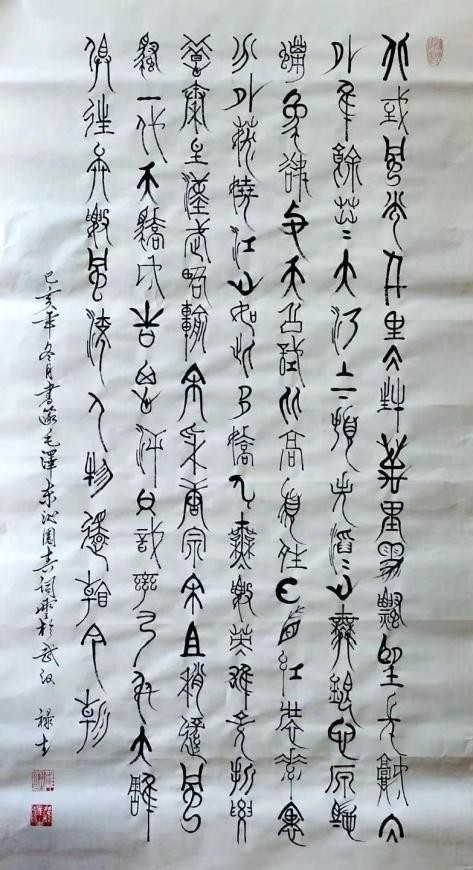 北或風光千里冰封萬里雪飄望長城內
外惟餘莽〻大河上下頓失滔〻山舞銀蛇原馳
蠟象欲與天公試比高須晴日看紅裝素裹
分外妖嬈江山如此多嬌引無數英雄競折腰
惜秦皇漢武略輸文采唐宗宋祖稍遜風
騷一代天驕成吉思汗只識彎弓射大雕
俱往矣數風流人物還看今朝
己亥年冬月書錄毛澤東沁園春詞雪於武漢 祿書